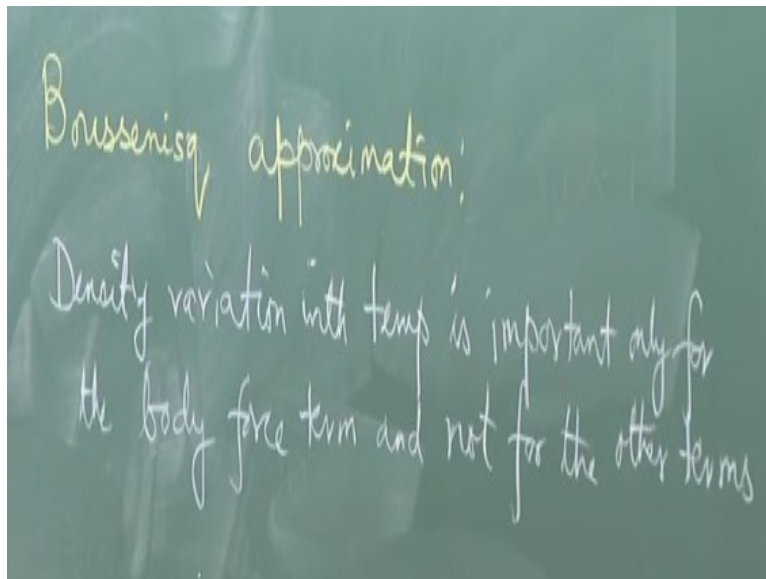 Boussenisq approximation:
Density variation with temp is important only for
the body force term and not for the other terms